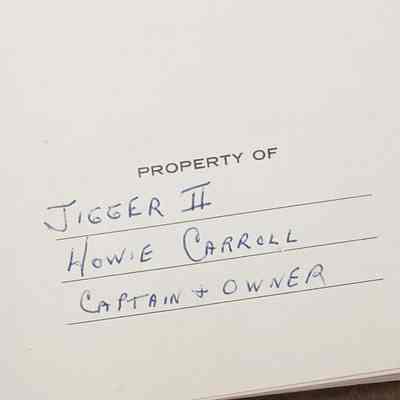 PROPERTY OF
JIGGER II
HOWIE CARROLL
CAPTAIN + OWNER